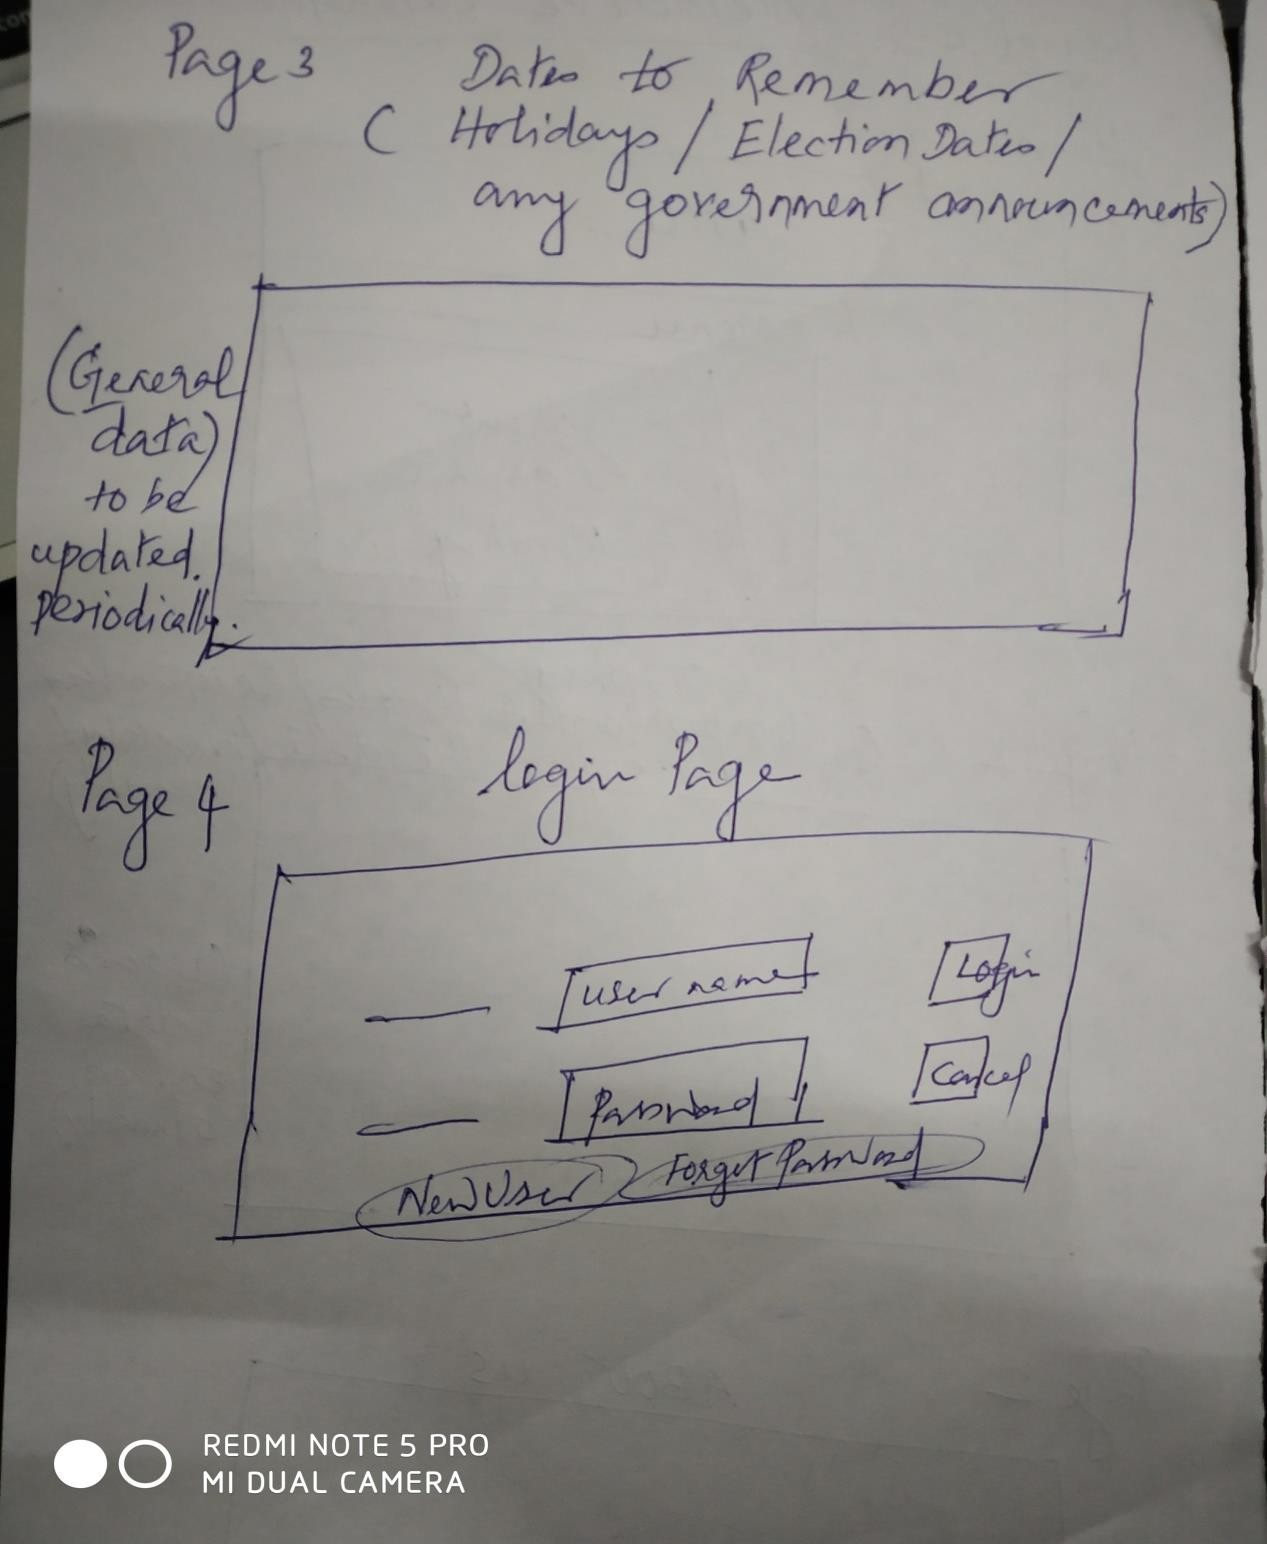 Page 3
Dates to Remember
( Holidays / Election Dates /
any government announcements)
(General
data)
to be
updated.
periodically.
Page 4
login Page
user name
Login
Password
Cancel
New User
Forget Password
REDMI NOTE 5 PRO
MI DUAL CAMERA